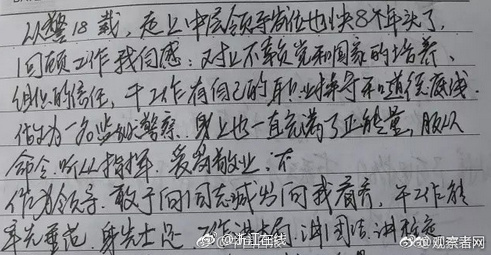 从警18载,走上中层领导岗位也快8个年头了,
回顾工作我自感:对上不辜负党和国家的培养、
组织的信任,干工作有自己的职业操守和道德底线.
作为一名监狱警察.身上也一直充满了正能量,服从
命令.听从指挥.爱岗敬业.不
作为领导.敢于向同志喊出向我看齐,干工作能
率先垂范.身先士卒 工作讲 讲团结.讲
@浙江在线
@观察者网